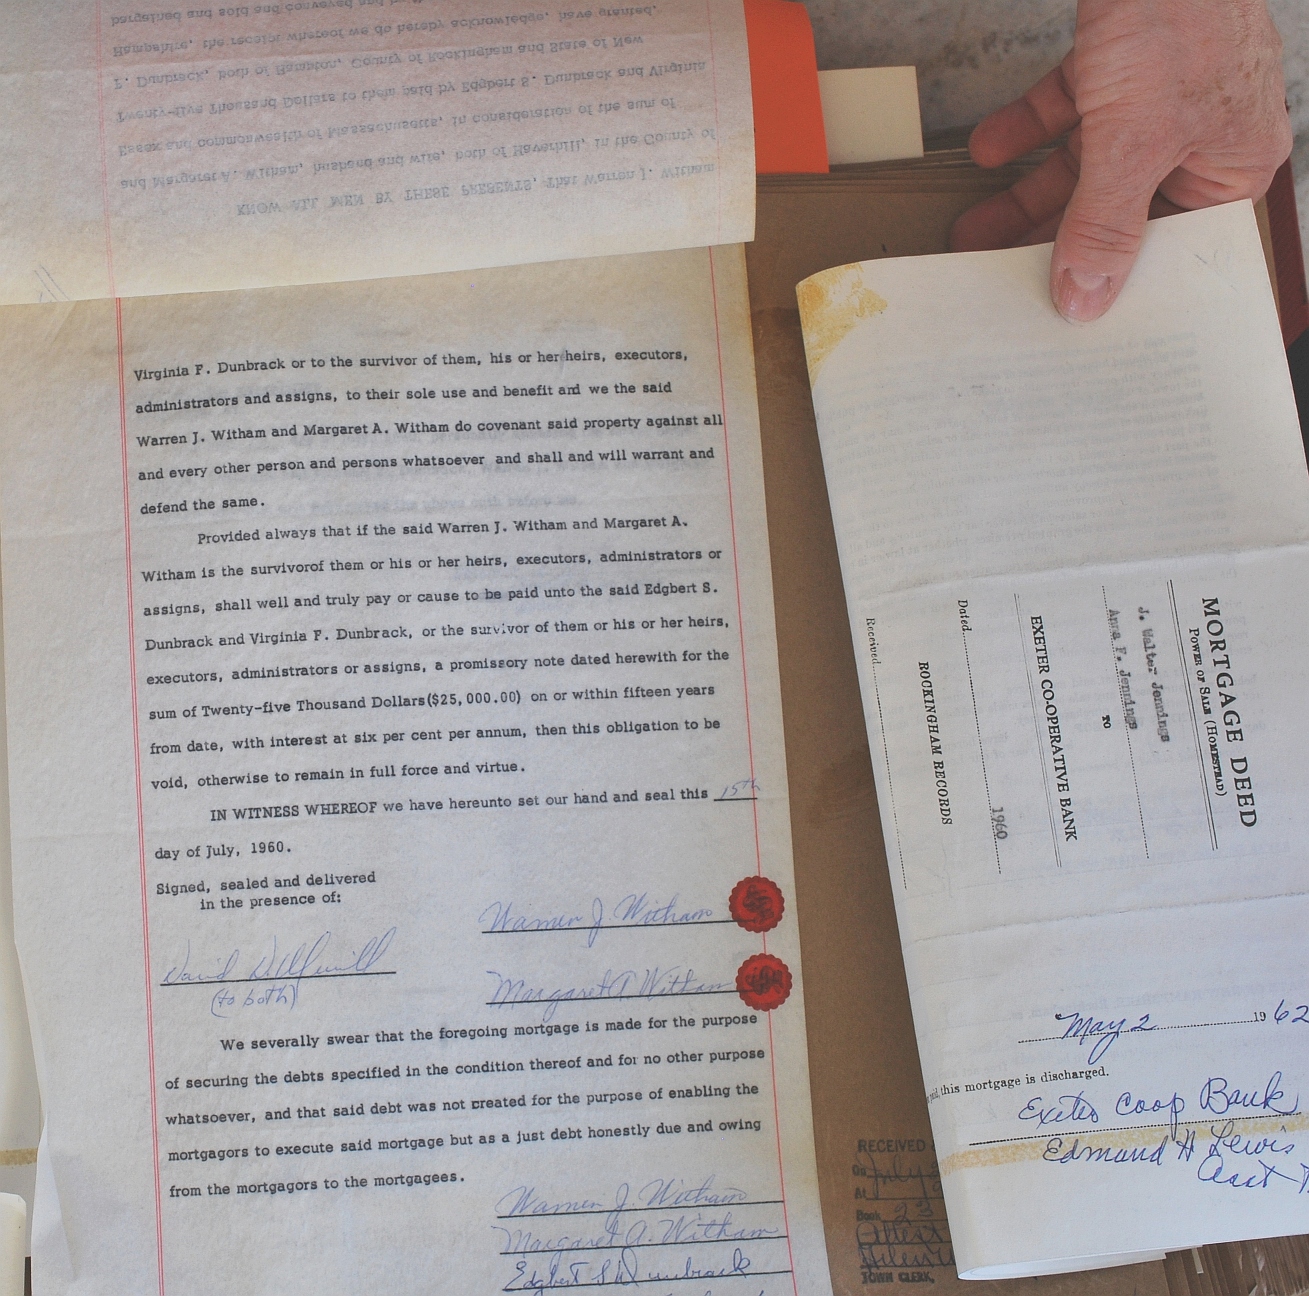 bargained and sold and conveyed and
Hampshire, the receipt whereof we do hereby acknowledge, have granted,
F. Dunbrack, both of Hampton, County of Rockingham and State of New
Twenty-five Thousand Dollars to them paid by Edgbert S. Dunbrack and Virginia
Essex and commonwealth of Massachusetts, in consideration of the sum of
and Margaret A. Witham, husband and wife, both of Haverhill, in the County of
KNOW ALL MEN BY THESE PRESENTS, That Warren J. Witham
Virginia F. Dunbrack or to the survivor of them, his or her heirs, executors,
administrators and assigns, to their sole use and benefit and we the said
Warren J. Witham and Margaret A. Witham do covenant said property against all
and every other person and persons whatsoever and shall and will warrant and
defend the same.
Provided always that if the said Warren J. Witham and Margaret A.
Witham is the survivorof them or his or her heirs, executors, administrators or
assigns, shall well and truly pay or cause to be paid unto the said Edgbert S.
Dunbrack and Virginia F. Dunbrack, or the survivor of them or his or her heirs,
executors, administrators or assigns, a promissory note dated herewith for the
sum of Twenty-five Thousand Dollars($25,000.00) on or within fifteen years
from date, with interest at six per cent per annum, then this obligation to be
void, otherwise to remain in full force and virtue.
IN WITNESS WHEREOF we have hereunto set our hand and seal this 15th
day of July, 1960.
Signed, sealed and delivered
in the presence of:
Warren J. Witham
David
(to both)
Margaret A Witham
We severally swear that the foregoing mortgage is made for the purpose
of securing the debts specified in the condition thereof and for no other purpose
whatsoever, and that said debt was not created for the purpose of enabling the
mortgagors to execute said mortgage but as a just debt honestly due and owing
from the mortgagors to the mortgagees.
Warren J. Witham
Margaret A. Witham
Edgbert S Dunbrack
MORTGAGE DEED
POWER OF SALE (HOMESTEAD)
J. Walter Jennings
Anna F. Jennings
TO
EXETER CO-OPERATIVE BANK
Dated 1960
ROCKINGHAM RECORDS
Received
May 2 1962
this mortgage is discharged.
Exeter Coop Bank
Edmund H Lewis
Asst
RECEIVED
On July
At
Book 23
Attest
Helen
TOWN CLERK,